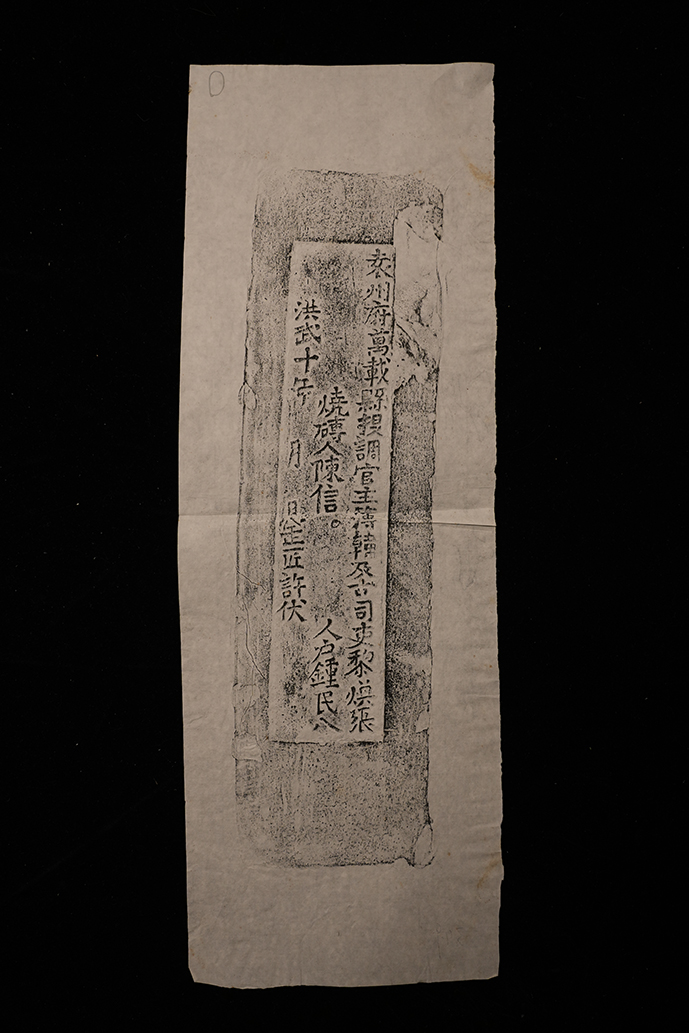 袁州府萬載縣提調官主簿韓及古司吏黎
張
燒磚人陳信。
人户鍾民八
洪武十年 月 日
匠許伏